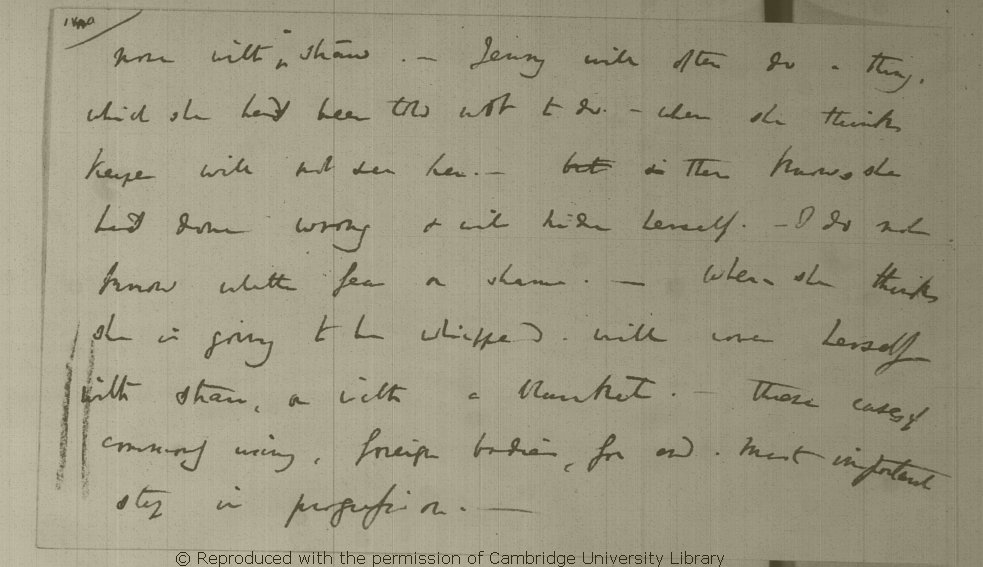 nose with straw. — Jenny will often do a thing,
which she had been told not to do. — when she thinks
keeper will not see her. — but then knows she
had done wrong & will hide herself. — I do not
know whether fear or shame. — When she thinks
she is going to be whipped. will cover herself
with straw, or with a blanket. — These cases of
commonly using, foreign bodies, for end. most important
step in progression. —
© Reproduced with the permission of Cambridge University Library